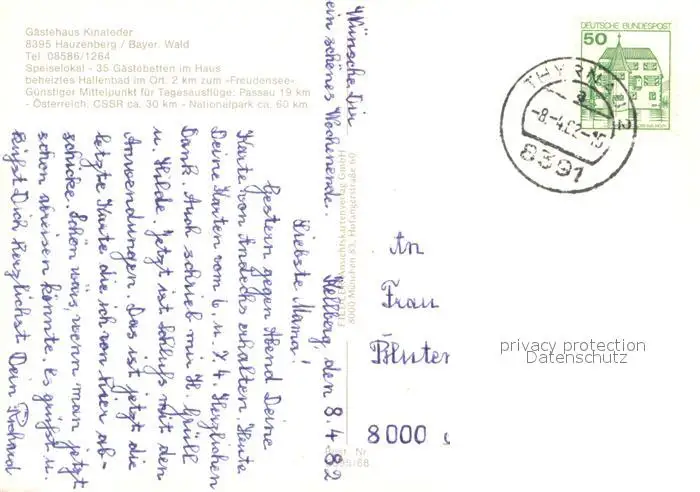 Gästehaus Kinateder
8395 Hauzenberg / Bayer. Wald
Tel. 08586/1264
Speiselokal - 35 Gästebetten im Haus
beheiztes Hallenbad im Ort. 2 km zum «Freudensee»
Günstiger Mittelpunkt für Tagesausflüge: Passau 19 km
- Österreich, CSSR ca. 30 km - Nationalpark ca. 60 km
Kellberg, den 8.4.82
Liebste Mama!
Gestern gegen Abend Deine
Karte von Andechs erhalten. Heute
Deine Karten vom 6. u. 7.4. Herzlichen
Dank. Auch schrieb mir H. Grüll
u. Hilde. Jetzt ist Schluß mit den
Anwendungen. Das ist jetzt die
letzte Karte die ich von hier ab-
schicke. Schön wärs, wenn man jetzt
schon abreisen könnte. Es grüßt u.
küßt Dich herzlichst Dein Richard
Wünsche Dir
ein schönes Wochenende.
8000 München 83
DEUTSCHE BUNDESPOST
50
THYRNAU 2
a
-8.-4.82-16
8391
An
Frau
8000
privacy protection
Datenschutz